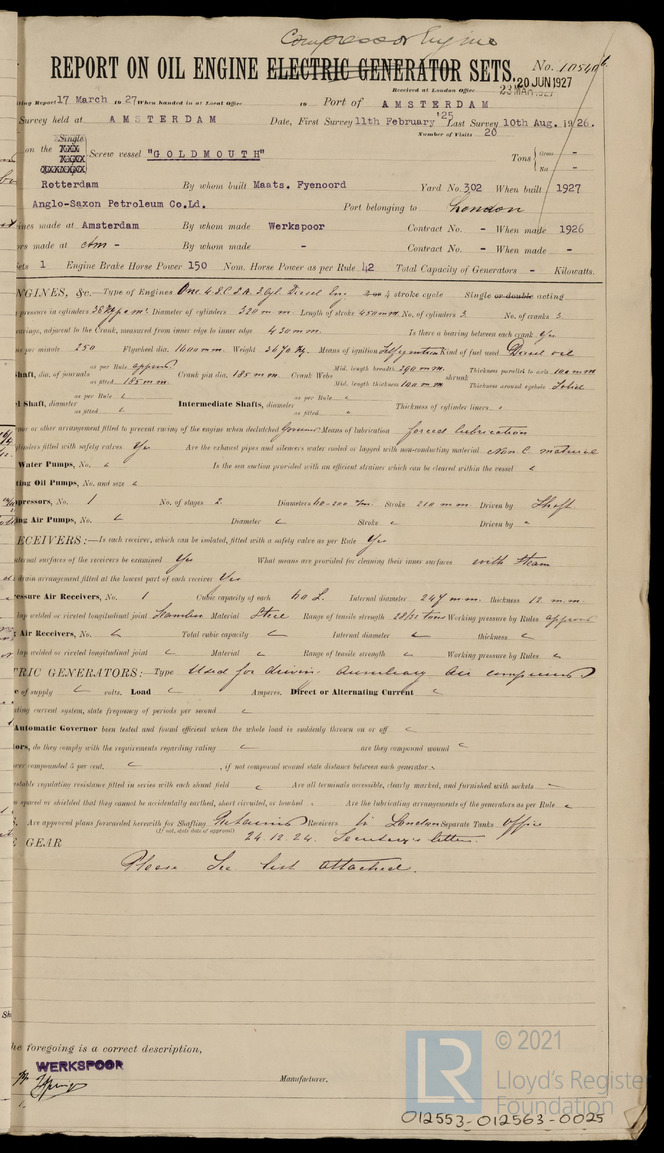 Compressor Engine
REPORT ON OIL ENGINE ELECTRIC GENERATOR SETS. No. 10540
Received at London Office 20 JUN 1927
ting Report 17 March 1927 When handed in at Local Office 19 Port of AMSTERDAM
Survey held at AMSTERDAM Date, First Survey 11th February '25 Last Survey 10th Aug. 1926.
Number of Visits 20
on the Single Screw vessel "GOLDMOUTH" Tons Gross - Net -
Rotterdam By whom built Maats. Fyenoord Yard No. 302 When built 1927
Anglo-Saxon Petroleum Co.Ld. Port belonging to London
ines made at Amsterdam By whom made Werkspoor Contract No. - When made 1926
ors made at - By whom made - Contract No. - When made -
Sets 1 Engine Brake Horse Power 150 Nom. Horse Power as per Rule 42 Total Capacity of Generators - Kilowatts.
NGINES, &c.—Type of Engines One 4 S.C.S.A. 3 Cyl. Diesel Eng. 2 or 4 stroke cycle Single or double acting
pressure in cylinders Diameter of cylinders 320 m m. Length of stroke 450 mm. No. of cylinders 3. No. of cranks 3.
earings, adjacent to the Crank, measured from inner edge to inner edge 430 mm. Is there a bearing between each crank Yes
ns per minute 250 Flywheel dia. 1600 mm. Weight 3670 Kg. Means of ignition Self ignition Kind of fuel used Diesel oil
Shaft, dia. of journals as per Rule approved as fitted 185 mm Crank pin dia. 185 mm. Crank Webs Mid. length breadth 290 mm. Mid. length thickness 100 mm shrunk Thickness parallel to axis 100 mm Thickness around eyehole Solid
l Shaft, diameter as per Rule as fitted Intermediate Shafts, diameter as per Rule as fitted Thickness of cylinder liners
nor or other arrangement fitted to prevent racing of the engine when declutched Governor Means of lubrication forced lubrication
ylinders fitted with safety valves Yes Are the exhaust pipes and silencers water cooled or lagged with non-conducting material Non C. material
Water Pumps, No. Is the sea suction provided with an efficient strainer which can be cleared within the vessel
ting Oil Pumps, No. and size
pressors, No. 1 No. of stages 2 Diameters 60-200 Stroke 210 mm. Driven by Shaft
ng Air Pumps, No. Diameter Stroke Driven by
ECEIVERS:—Is each receiver, which can be isolated, fitted with a safety valve as per Rule Yes
ternal surfaces of the receivers be examined Yes What means are provided for cleaning their inner surfaces with steam
drain arrangement fitted at the lowest part of each receiver Yes
essure Air Receivers, No. 1 Cubic capacity of each 60 L. Internal diameter 247 m m. thickness 12 m. m.
lap welded or riveted longitudinal joint Seamless Material Steel Range of tensile strength 28/32 tons Working pressure by Rules approved
g Air Receivers, No. Total cubic capacity Internal diameter thickness
lap welded or riveted longitudinal joint Material Range of tensile strength Working pressure by Rules
TRIC GENERATORS:—Type Used for driving auxiliary air compressor
e of supply volts. Load Amperes. Direct or Alternating Current
ting current system, state frequency of periods per second
Automatic Governor been tested and found efficient when the whole load is suddenly thrown on or off
ors, do they comply with the requirements regarding rating are they compound wound
over compounded 5 per cent. , if not compound wound state distance between each generator
stable regulating resistance fitted in series with each shunt field Are all terminals accessible, clearly marked, and furnished with sockets
o spaced or shielded that they cannot be accidentally earthed, short circuited, or touched Are the lubricating arrangements of the generators as per Rule
Are approved plans forwarded herewith for Shafting Retained Receivers in London Separate Tanks Office
(If not, state date of approval) 24.12.24. Secretary's letter.
GEAR
Please See list attached.
he foregoing is a correct description,
WERKSPOOR
Manufacturer.
LR © 2021
Lloyd's Register
Foundation
012553-012563-0025